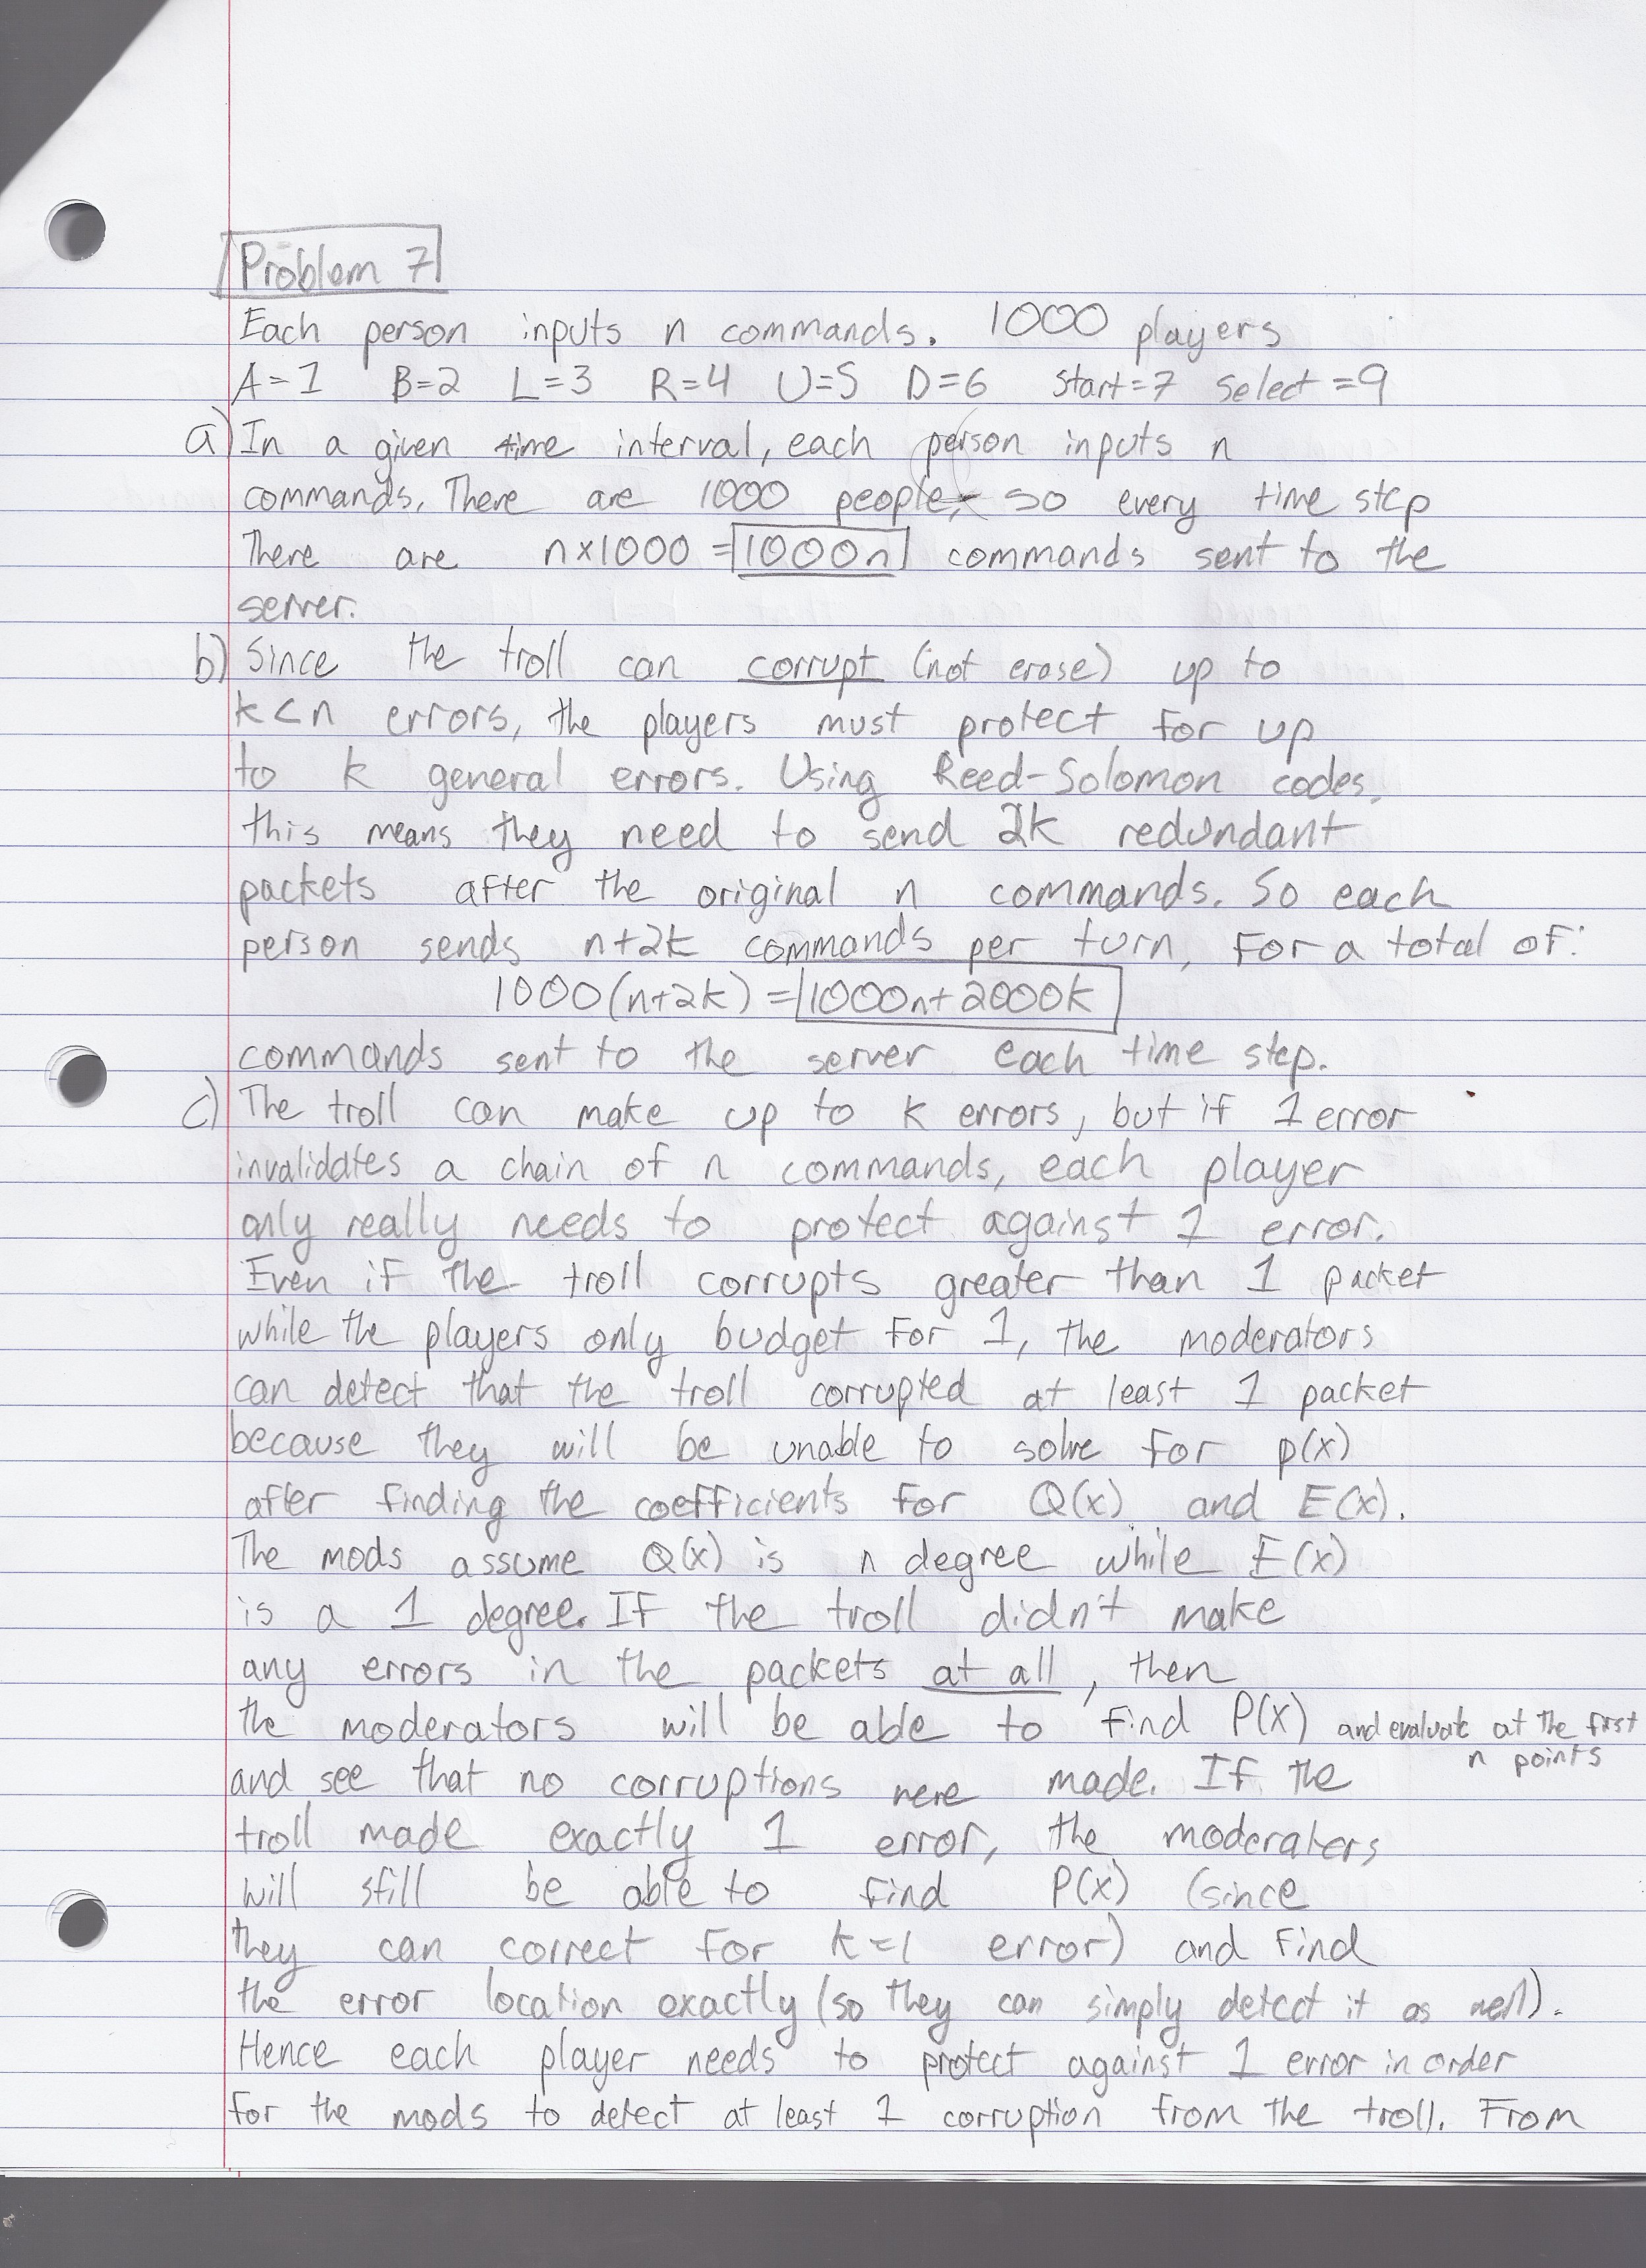 Problem 7
Each person inputs n commands. 1000 players
A=1 B=2 L=3 R=4 U=5 D=6 Start=7 Select=9
a) In a given time interval, each person inputs n
commands. There are 1000 people, so every time step
There are n×1000 = 1000n commands sent to the
server.
b) Since the troll can corrupt (not erase) up to
k<n errors, the players must protect for up
to k general errors. Using Reed-Solomon codes,
this means they need to send 2k redundant
packets after the original n commands. So each
person sends n+2k commands per turn, for a total of:
1000(n+2k) = 1000n+2000k
commands sent to the server each time step.
c) The troll can make up to k errors, but if 1 error
invalidates a chain of n commands, each player
only really needs to protect against 1 error.
Even if the troll corrupts greater than 1 packet
while the players only budget for 1, the moderators
can detect that the troll corrupted at least 1 packet
because they will be unable to solve for p(x)
after finding the coefficients for Q(x) and E(x).
The mods assume Q(x) is n degree while E(x)
is a 1 degree. If the troll didn't make
any errors in the packets at all, then
the moderators will be able to find P(x) and evaluate at the first
n points
and see that no corruptions were made. If the
troll made exactly 1 error, the moderators
will still be able to find P(x) (since
they can correct for k=1 error) and find
the error location exactly (so they can simply detect it as well).
Hence each player needs to protect against 1 error in order
for the mods to detect at least 1 corruption from the troll. From